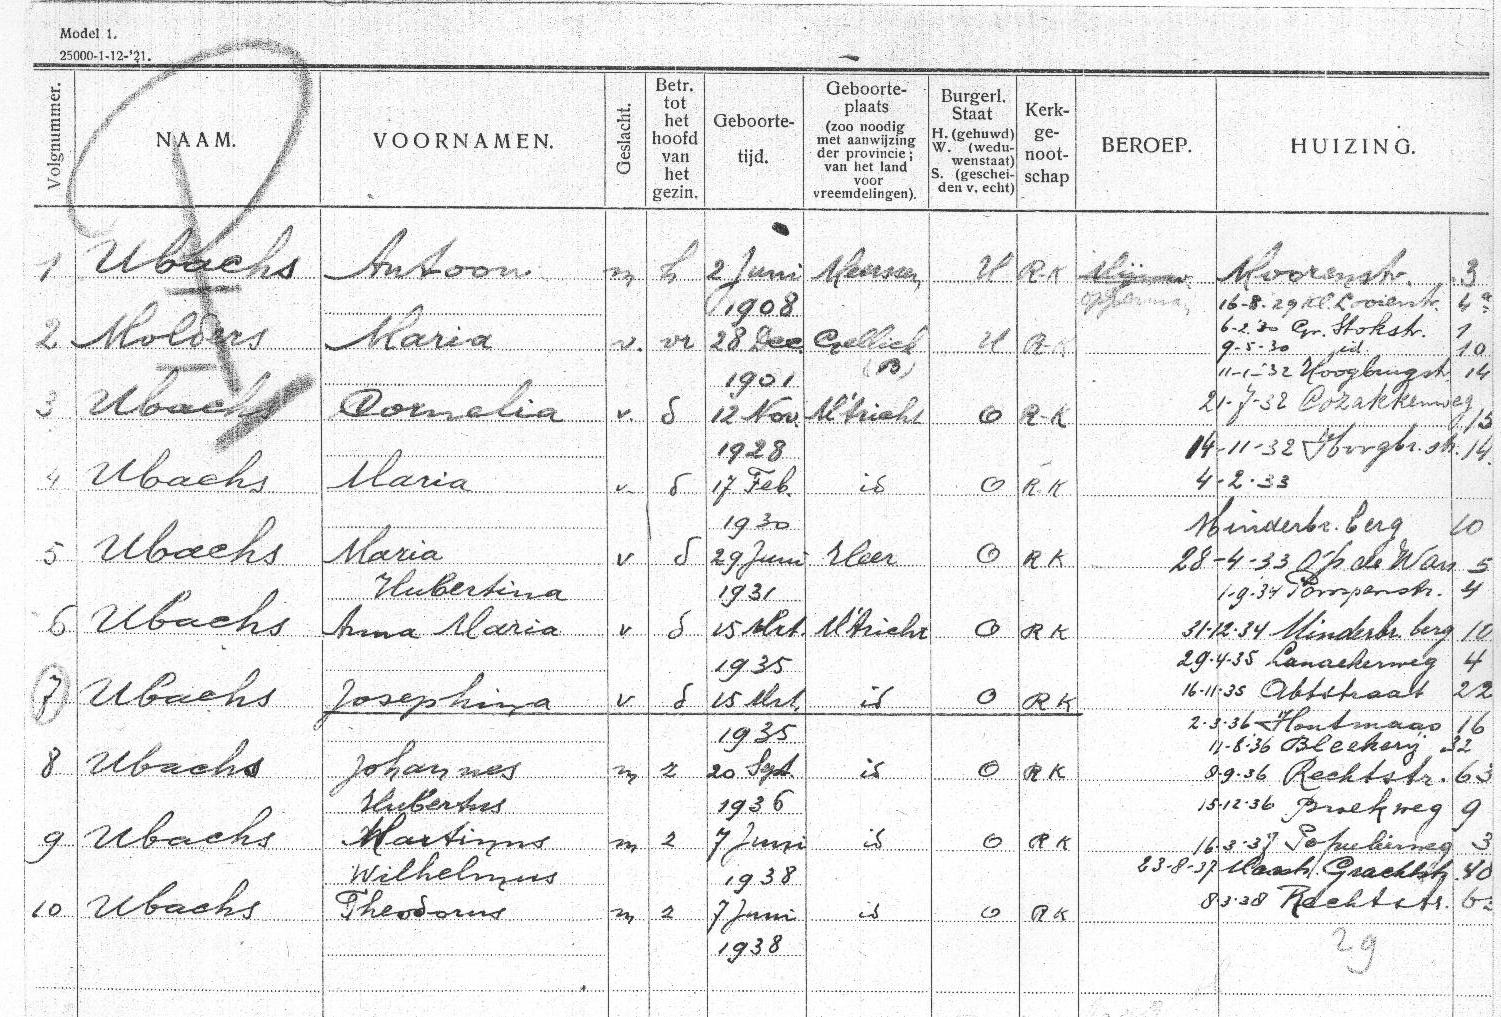 Model 1.
25000-1-12-'21.
Volgnummer. NAAM. VOORNAMEN. Geslacht. Betr. tot het hoofd van het gezin. Geboorte-tijd. Geboorte-plaats (zoo noodig met aanwijzing der provincie; van het land voor vreemdelingen). Burgerl. Staat H. (gehuwd) W. (wedu-wenstaat) S. (geschei-den v. echt) Kerk-ge-noot-schap BEROEP. HUIZING.
1 Ubachs Antoon m h 2 Juni Meerssen H R-K Moorenstr. 3
1908 opperman 16-8-29 Kl. Looierstr. 4a
2 Molders Maria v. vr 28 Dec. Gellick H R-K 6-2-30 Gr. Stokstr. 1
9-5-30 id 10
1901 (B) 11-1-32 Hoogbrugstr. 14
3 Ubachs Cornelia v. d 12 Nov. M'tricht O R-K 21-7-32 Cozakkenweg 13
1928 14-11-32 Hoogbr.str. 14
4 Ubachs Maria v. d 17 Feb. id O R K 4-2-33
1930 Minderbr.berg 10
5 Ubachs Maria v d 29 Juni Heer O R K 28-4-33 Op de Wan 5
Hubertina 1931 1-9-34 Pompenstr. 4
6 Ubachs Anna Maria v d 15 Mrt. M'tricht O R K 31-12-34 Minderbr. berg 10
1935 29-4-35 Lanakerweg 4
7 Ubachs Josephina v d 15 Mrt. id O R K 16-11-35 Abtstraat 22
1935 2-3-36 Houtmaas 16
11-8-36 Bleekerij 32
8 Ubachs Johannes m z 20 Sept. id O R K 8-9-36 Rechtstr. 63
Hubertus 1936 15-12-36 Broekweg 9
9 Ubachs Martinus m z 7 Juni id O R K 16-3-37 Populierweg 3
Wilhelmus 1938 23-8-37 Grachtstr. 40
10 Ubachs Theodorus m z 7 Juni id O R K 8-3-38 Rechtstr.
1938 29